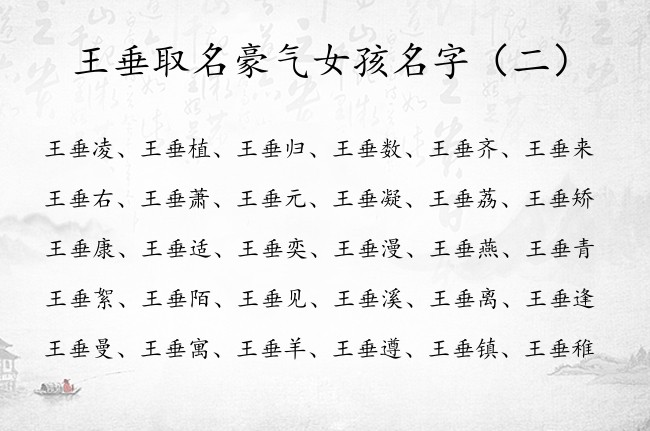 王垂取名豪气女孩名字（二）
王垂凌、王垂植、王垂归、王垂数、王垂齐、王垂来
王垂右、王垂萧、王垂元、王垂凝、王垂荔、王垂矫
王垂康、王垂适、王垂奕、王垂漫、王垂燕、王垂青
王垂絮、王垂陌、王垂见、王垂溪、王垂离、王垂逢
王垂曼、王垂寓、王垂羊、王垂遵、王垂镇、王垂稚